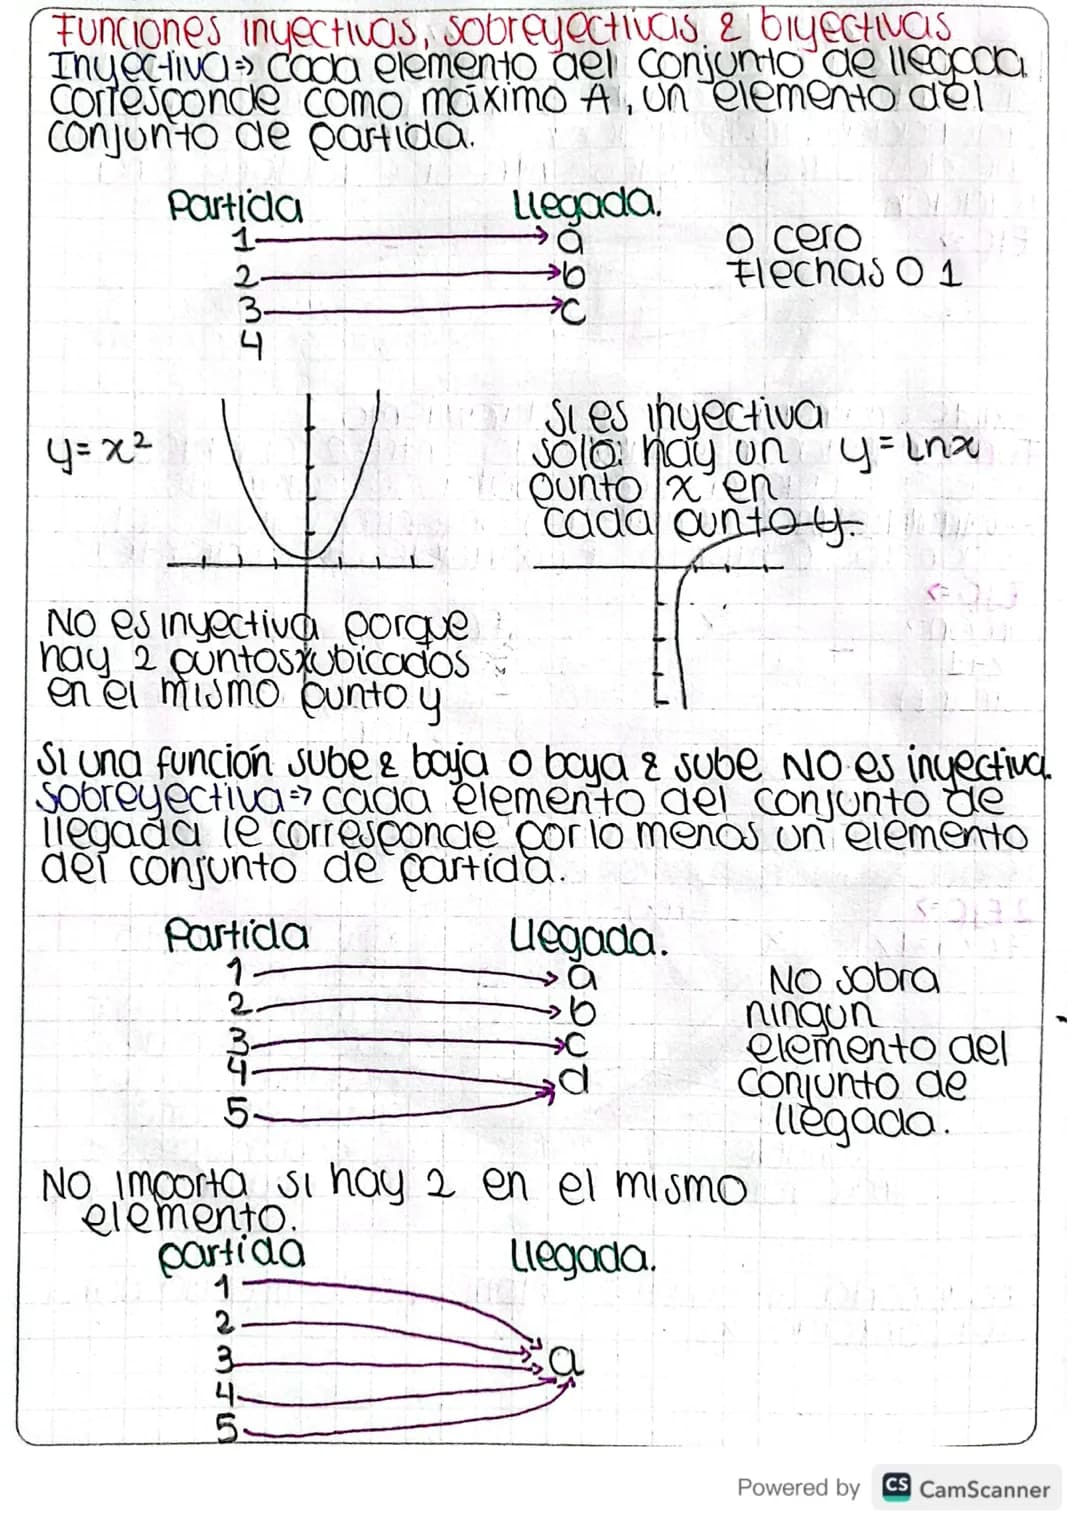 Funciones inyectivas, sobreyectivas & biyectivas
Inyectiva⇒ Cada elemento del conjunto de llegada
corresponde como máximo A, un elemento del
conjunto de partida.
Partida Llegada.
1 a
2 b
3 c
4
O cero
flechas O 1
y=x²
Si es inyectiva
solo hay un
punto x en
cada punto y.
y=Lnx
NO es inyectiva porque
hay 2 puntos x ubicados
en el mismo punto y
Si una función sube & baja o baya & sube NO es inyectiva.
Sobreyectiva⇒ cada elemento del conjunto de
llegada le corresponde por lo menos un elemento
del conjunto de partida.
Partida Llegada.
1 a
2 b
3 c
4 d
5
NO sobra
ningun
elemento del
conjunto de
llegada.
NO importa si hay 2 en el mismo
elemento.
partida Llegada.
1
2
3 a
4
5
Powered by CS CamScanner